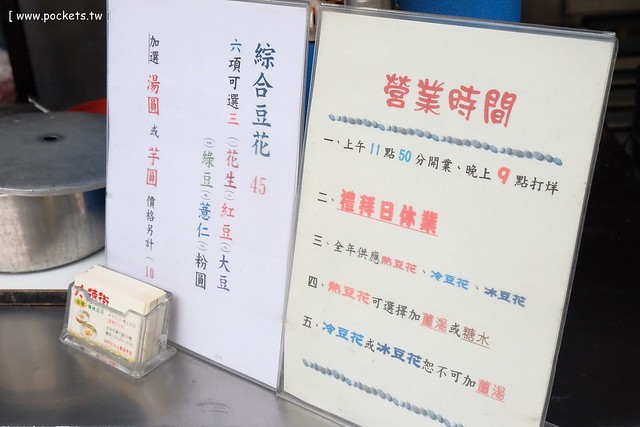 [ www.pockets.tw ]
綜合豆花 45
六項可選三 (花生)(紅豆)(大豆
(綠豆)(薏仁)(粉圓
加選 湯圓 或 芋圓 價格另計 (10
營業時間
一、上午11點50分開業、晚上9點打烊
二、禮拜日休業
三、全年供應熱豆花、冷豆花、冰豆花
四、熱豆花可選擇加薑湯或糖水
五、冷豆花或冰豆花恕不可加薑湯